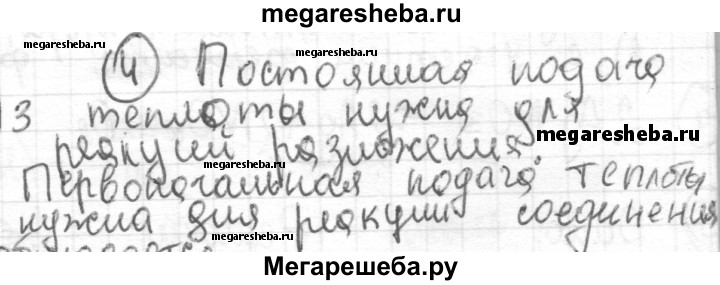 megaresheba.ru
megaresheba.ru
(4) Постоянная подача
з теплоты нужна для
megaresheba.ru
реакций разложения.
megaresheba.ru
Первоначальная подача теплоты
нужна для реакции соединения
megaresheba.ru
Мегарешеба.ру